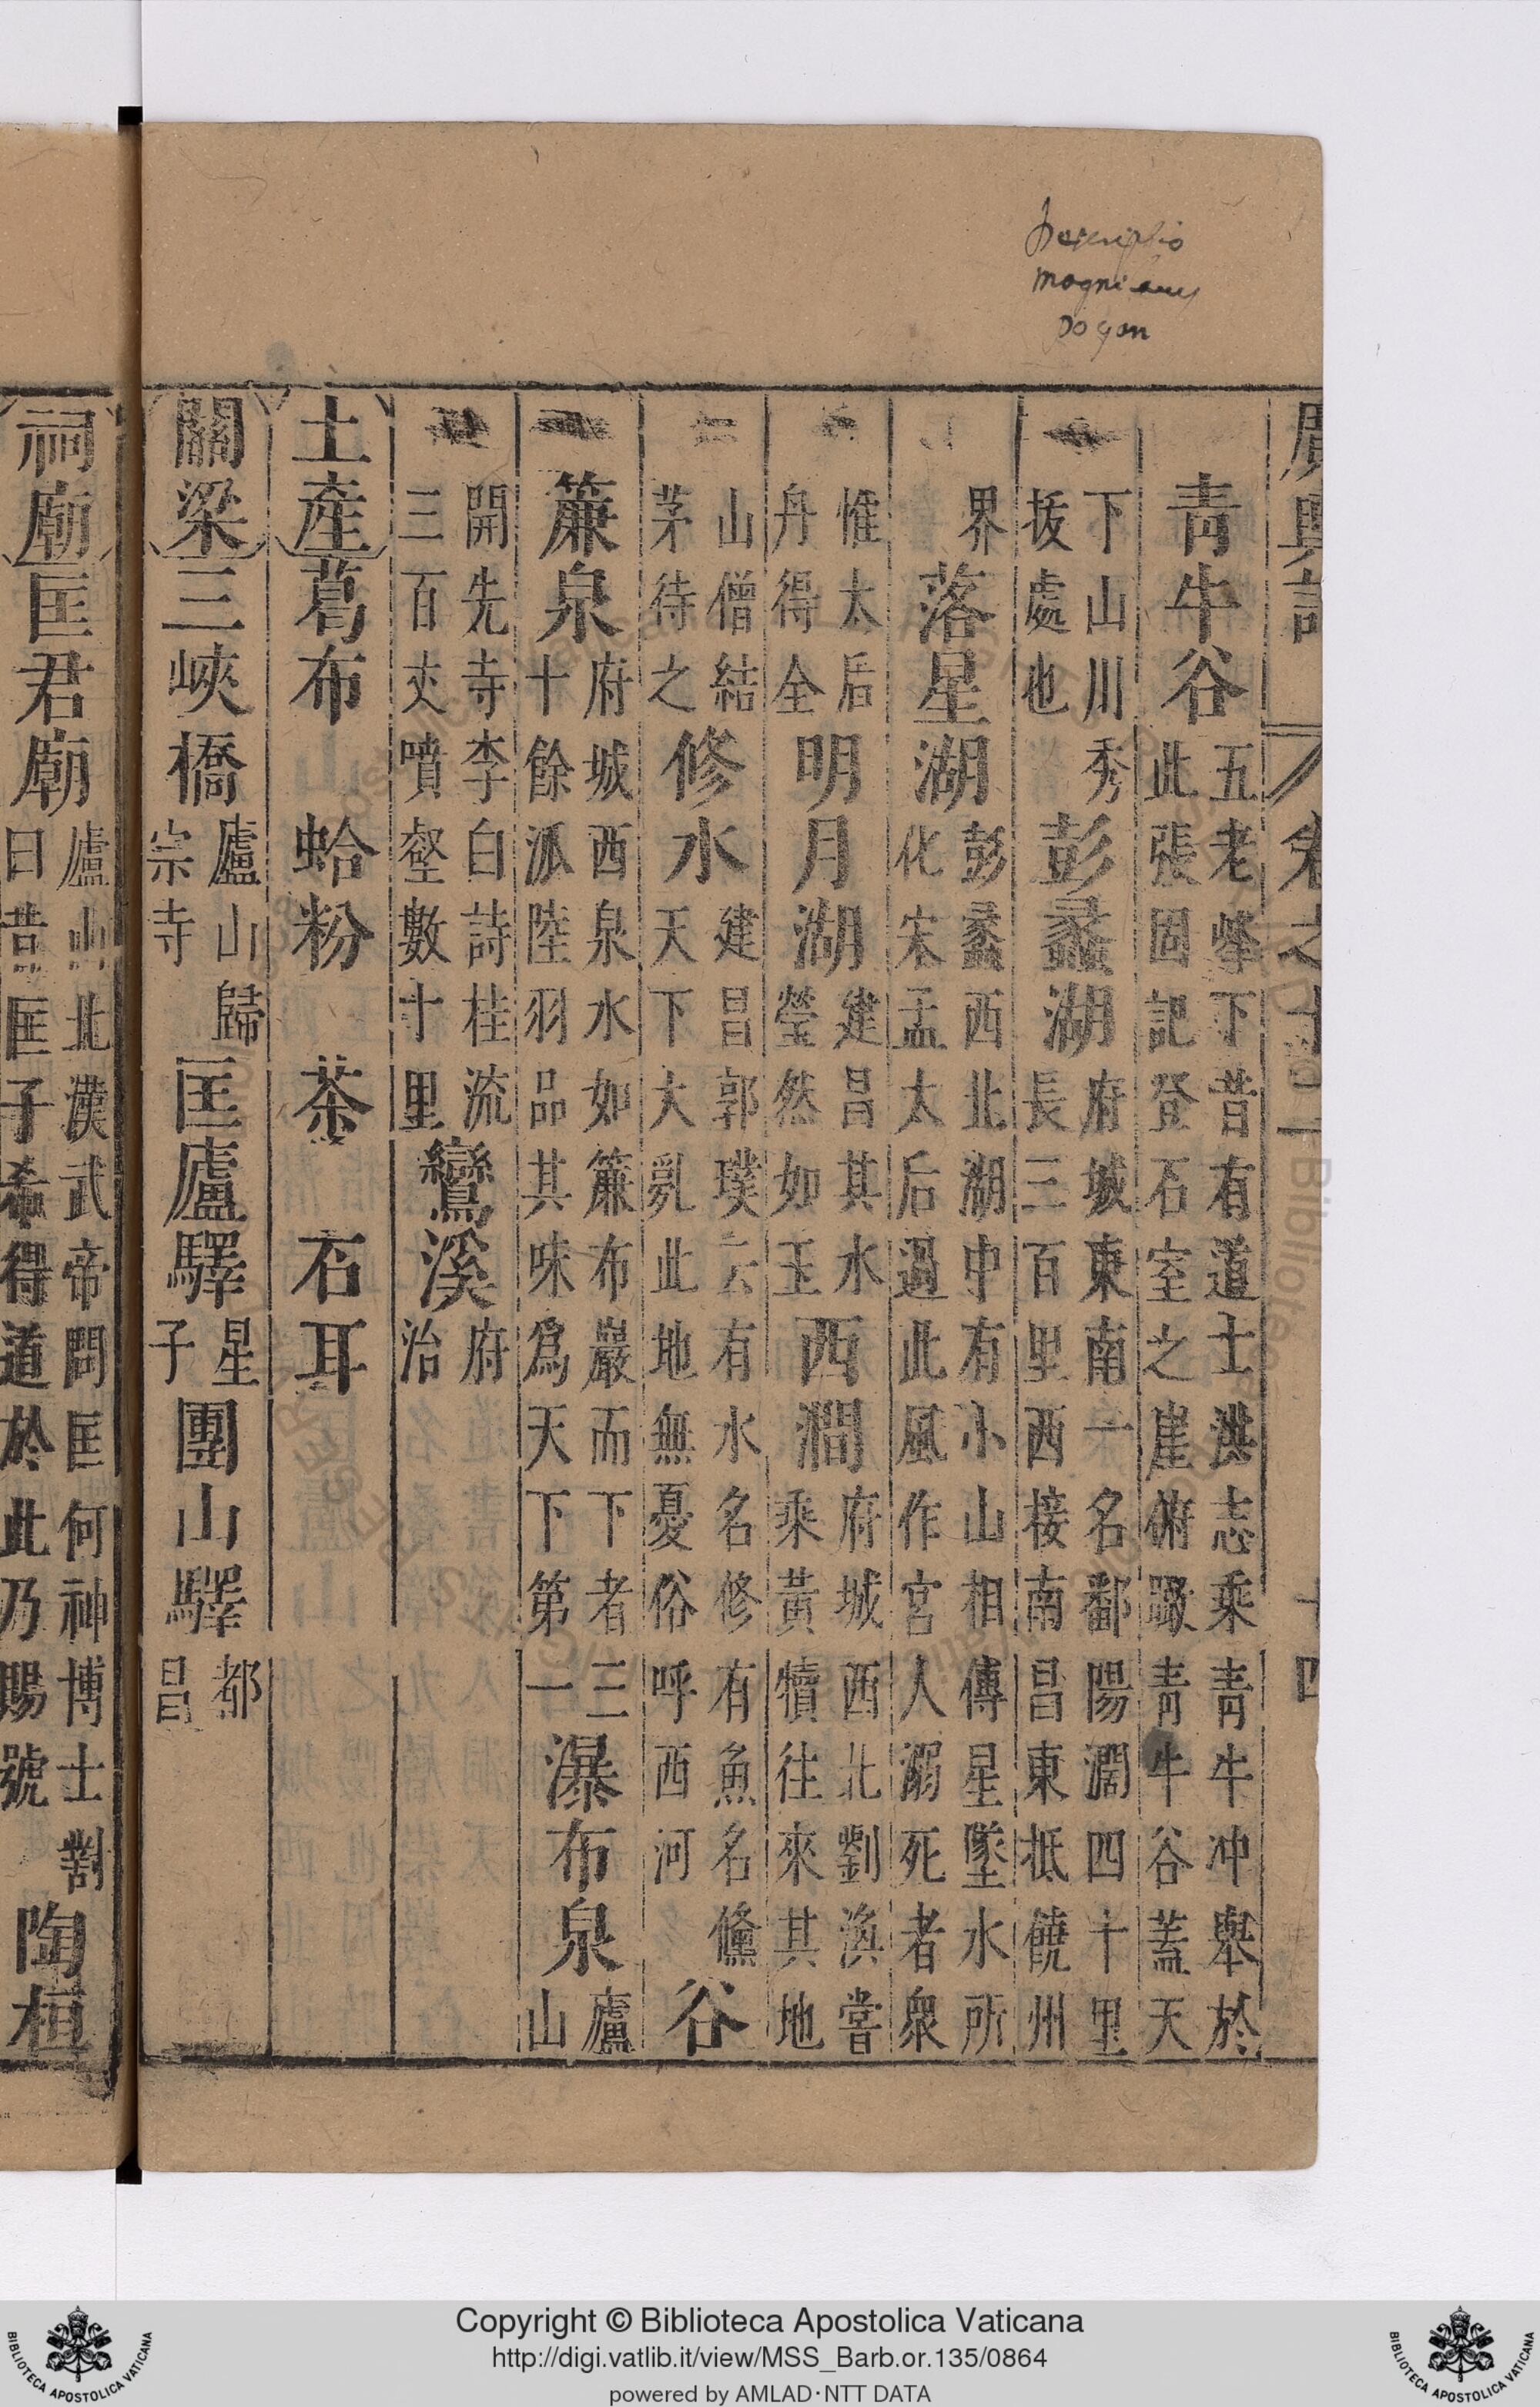 Descriptio
magni lacus
Po yan
廣輿記 卷之十二 十四
青牛谷 五老峰下昔有道士洪志乘青牛冲舉於
此張固記登石室之崖俯瞰青牛谷蓋天
下山川秀
拔處也 彭蠡湖 府城東南一名鄱陽濶四十里
長三百里西接南昌東抵饒州
界 落星湖 彭蠡西北湖中有小山相傳星墜水所
化宋孟太后過此風作宮人溺死者衆
惟太后
舟得全 明月湖 建昌其水
瑩然如玉 西澗 府城西北劉渙嘗
乘黃犢往來其地
山僧結
茅待之 修水 建昌郭璞云有水名修有魚名鯈
天下大亂此地無憂俗呼西河 谷
簾泉 府城西泉水如簾布巖而下者三
十餘派陸羽品其味爲天下第一 瀑布泉 廬
山
開先寺李白詩桂流
三百丈噴壑數十里 鸞溪 府
治
土產 葛布 蛤粉 茶 石耳
關梁 三峽橋 廬山歸
宗寺 匡廬驛 星
子 團山驛 都
昌
祠廟 匡君廟 廬山北漢武帝問匡何神博士對
曰昔匡子希得道於此乃賜號 陶桓
Copyright © Biblioteca Apostolica Vaticana
http://digi.vatlib.it/view/MSS_Barb.or.135/0864
powered by AMLAD·NTT DATA
BIBLIOTECA APOSTOLICA VATICANA
BIBLIOTECA APOSTOLICA VATICANA